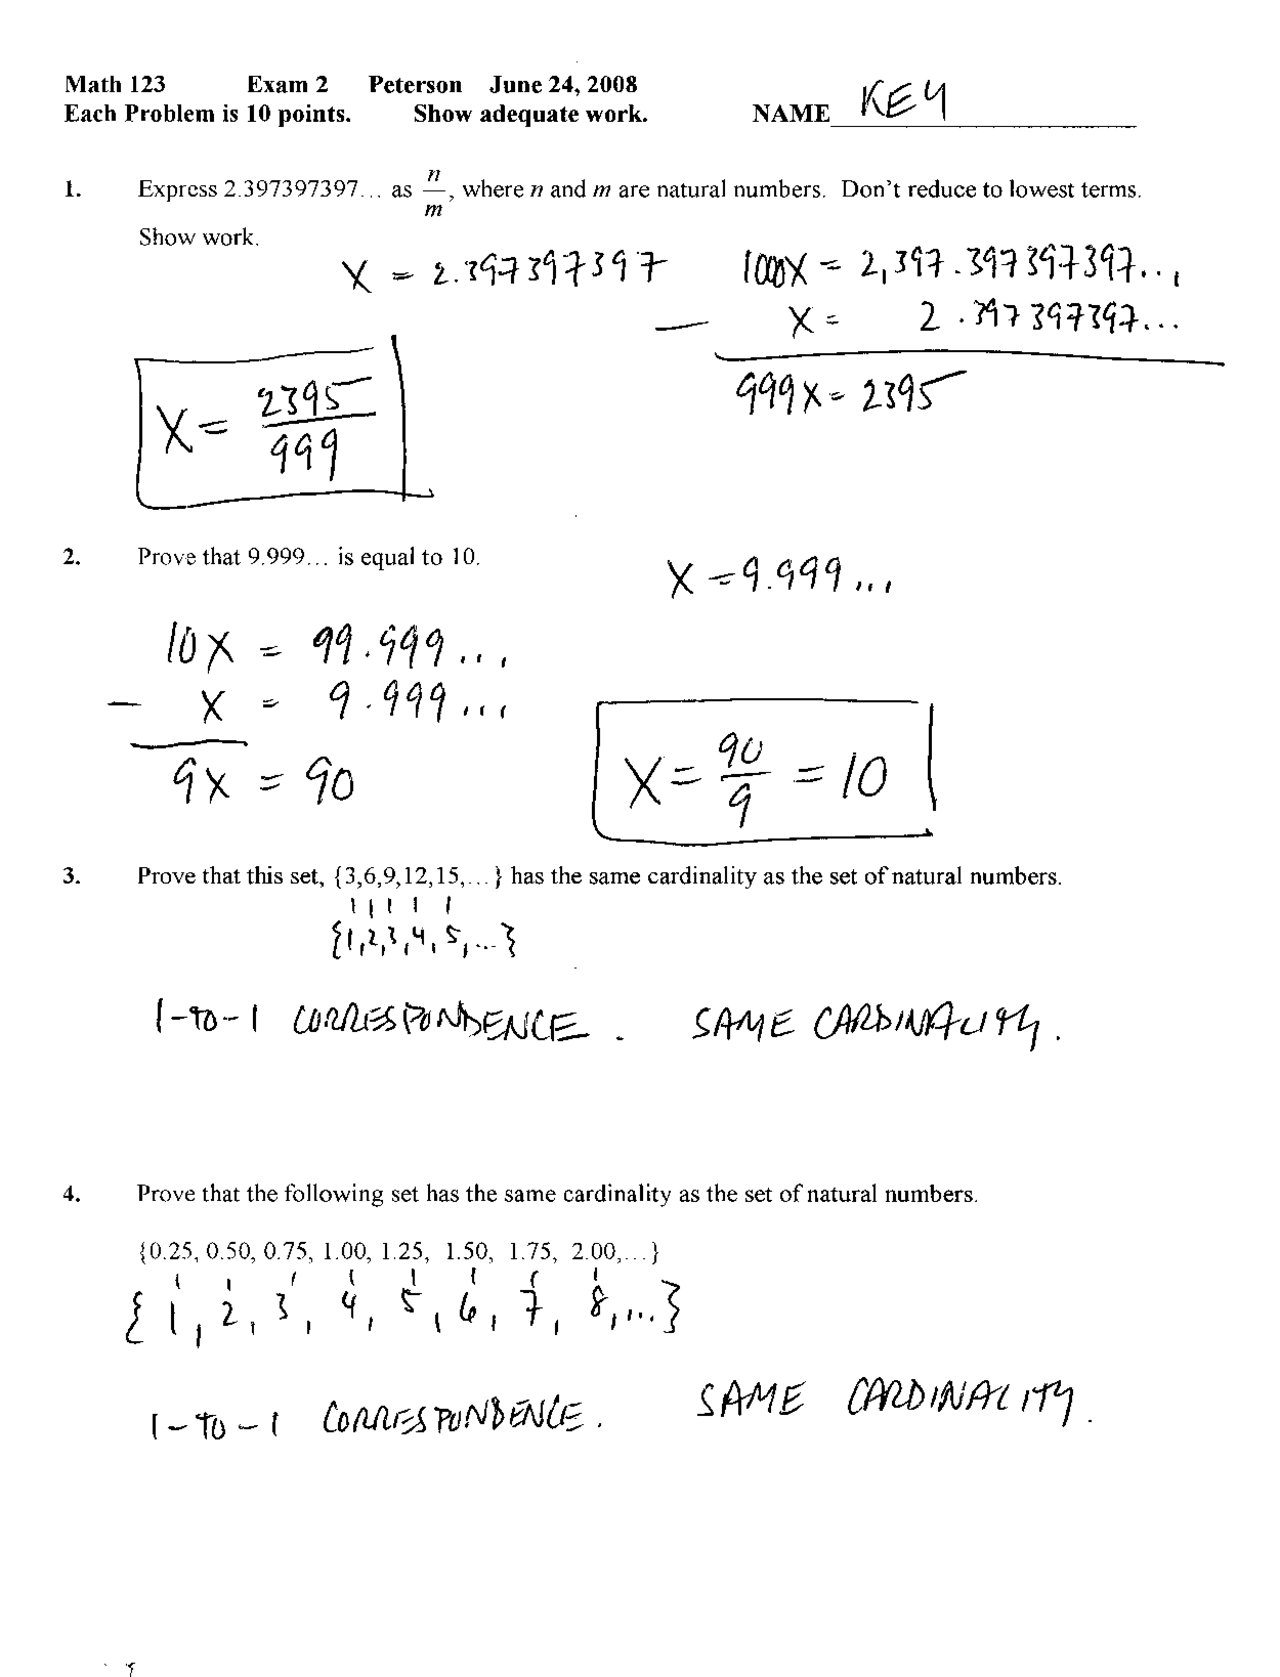 Math 123 Exam 2 Peterson June 24, 2008
Each Problem is 10 points. Show adequate work. NAME KEY
1. Express 2.397397397... as n/m, where n and m are natural numbers. Don't reduce to lowest terms.
Show work.
X = 2.397397397 1000X = 2,397.397397397...
— X = 2.397397397...
999X = 2395
X = 2395/999
2. Prove that 9.999... is equal to 10.
X = 9.999...
10X = 99.999...
— X = 9.999...
9X = 90
X = 90/9 = 10
3. Prove that this set, {3,6,9,12,15,...} has the same cardinality as the set of natural numbers.
{1,2,3,4,5,...}
1-TO-1 CORRESPONDENCE. SAME CARDINALITY.
4. Prove that the following set has the same cardinality as the set of natural numbers.
{0.25, 0.50, 0.75, 1.00, 1.25, 1.50, 1.75, 2.00,...}
{1, 2, 3, 4, 5, 6, 7, 8,...}
1-TO-1 CORRESPONDENCE. SAME CARDINALITY.